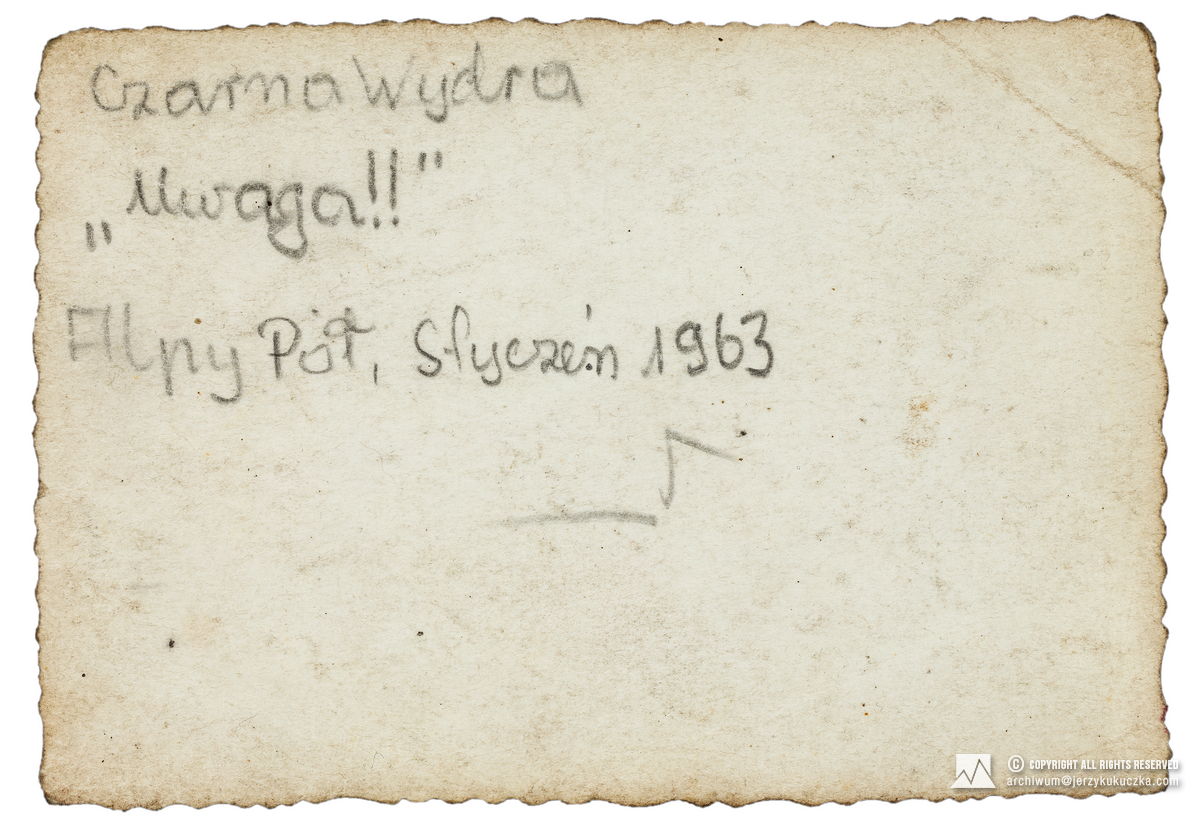 Czarna Wydra
„Uwaga!!"
Alpy Półł, Styczeń 1963
© COPYRIGHT ALL RIGHTS RESERVED
archiwum@jerzykukuczka.com